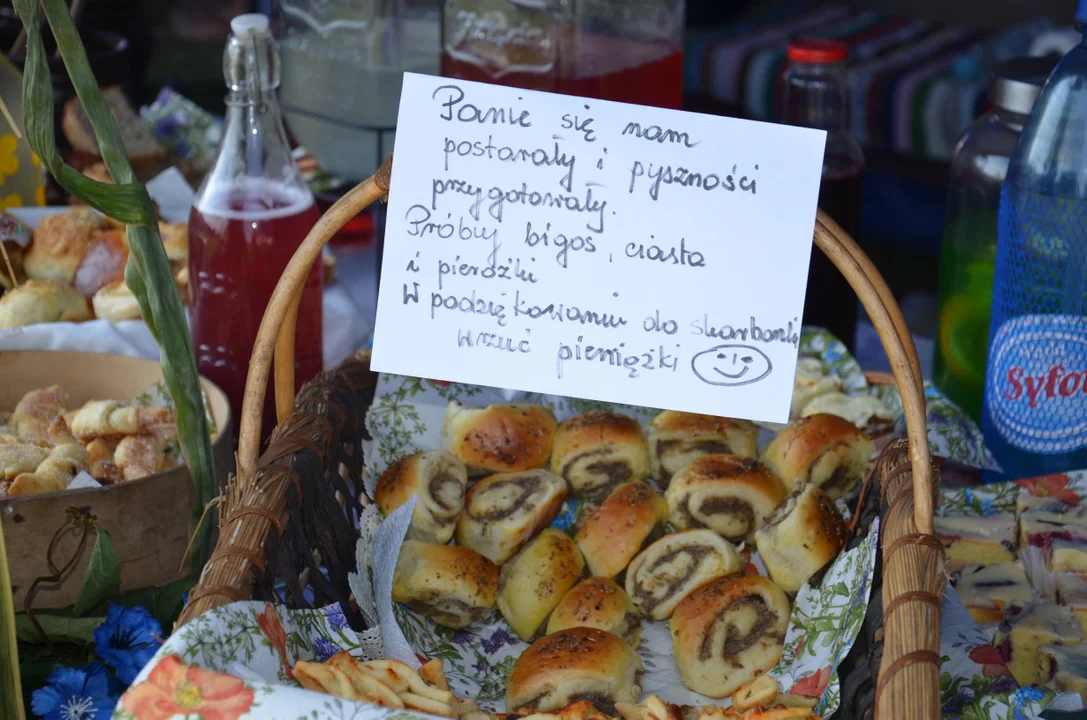 Panie się nam
postarały i pyszności
przygotowały.
Próbuj bigos, ciasta
i pierożki
W podziękowaniu do skarbonki
wrzuć pieniążki
Syfon